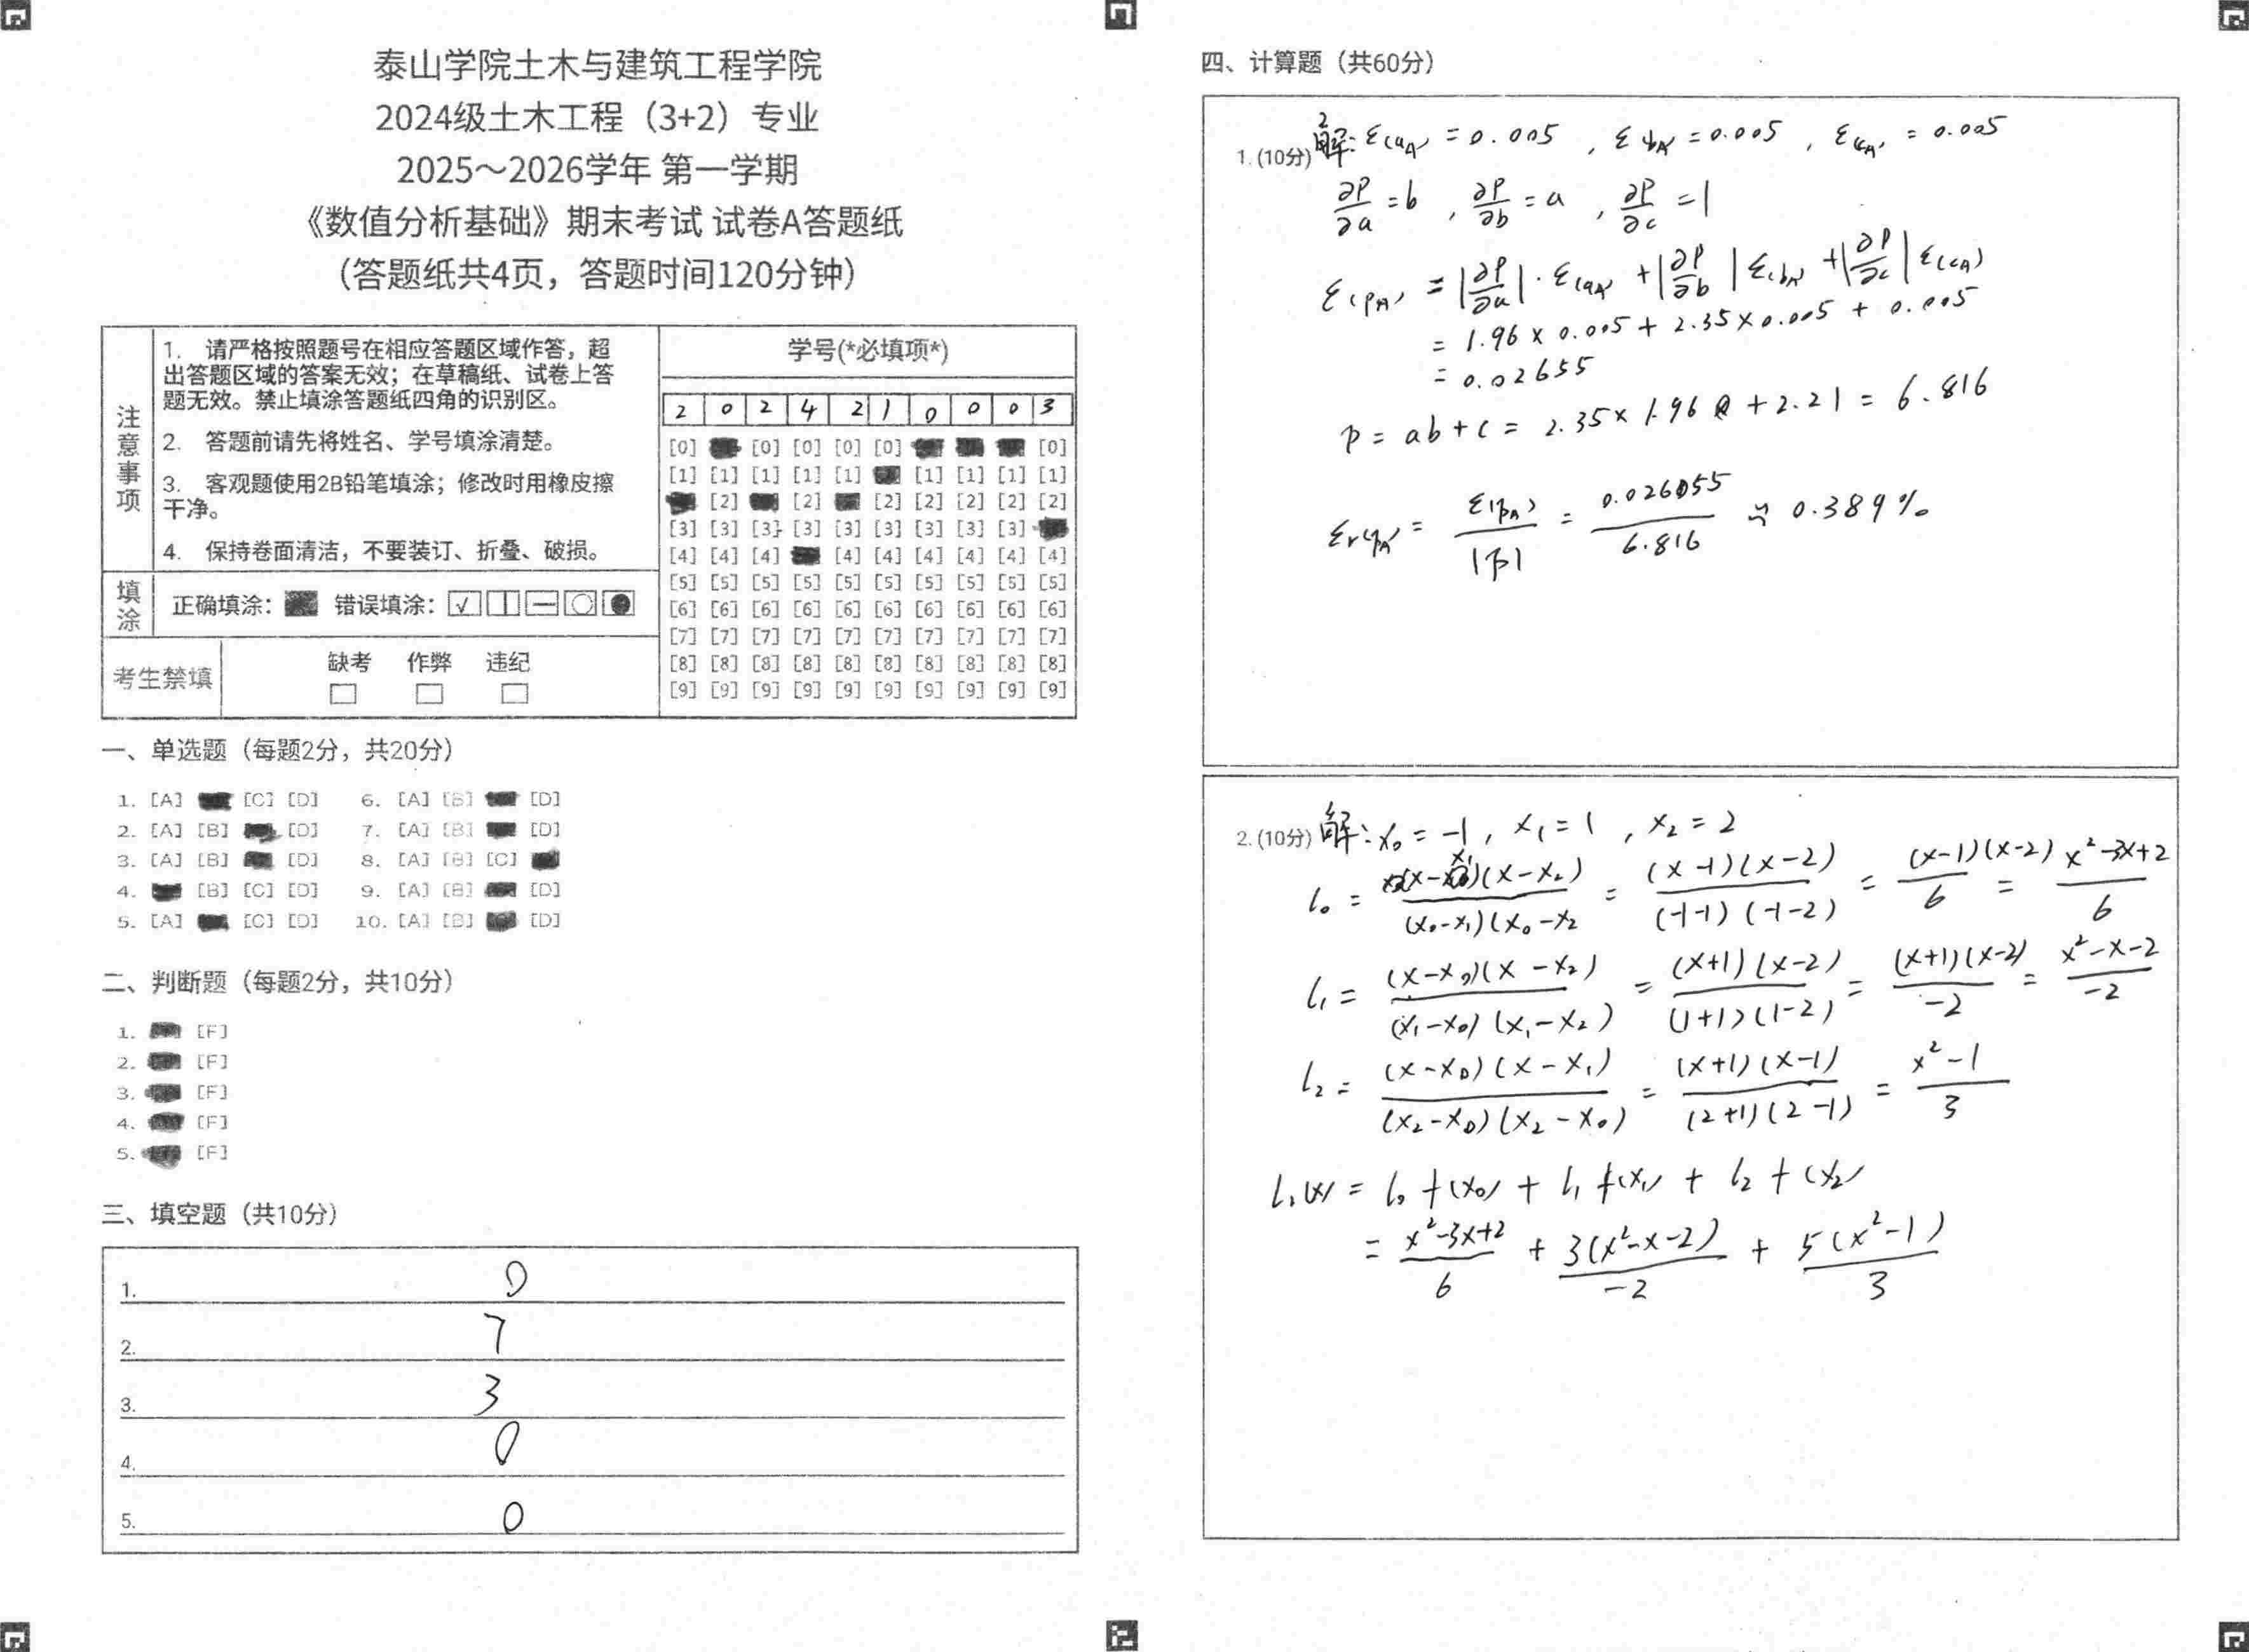 泰山学院土木与建筑工程学院
2024级土木工程（3+2）专业
2025～2026学年 第一学期
《数值分析基础》期末考试 试卷A答题纸
（答题纸共4页，答题时间120分钟）
注意事项
1. 请严格按照题号在相应答题区域作答，超
出答题区域的答案无效；在草稿纸、试卷上答
题无效。禁止填涂答题纸四角的识别区。
2. 答题前请先将姓名、学号填涂清楚。
3. 客观题使用2B铅笔填涂；修改时用橡皮擦
干净。
4. 保持卷面清洁，不要装订、折叠、破损。
填涂
正确填涂： 错误填涂：
考生禁填
缺考 作弊 违纪
学号(*必填项*)
2 0 2 4 2 1 0 0 0 3
[0] [0] [0] [0] [0] [0]
[1] [1] [1] [1] [1] [1] [1] [1] [1]
[2] [2] [2] [2] [2] [2] [2]
[3] [3] [3] [3] [3] [3] [3] [3] [3]
[4] [4] [4] [4] [4] [4] [4] [4] [4]
[5] [5] [5] [5] [5] [5] [5] [5] [5] [5]
[6] [6] [6] [6] [6] [6] [6] [6] [6] [6]
[7] [7] [7] [7] [7] [7] [7] [7] [7] [7]
[8] [8] [8] [8] [8] [8] [8] [8] [8] [8]
[9] [9] [9] [9] [9] [9] [9] [9] [9] [9]
一、单选题（每题2分，共20分）
1. [A] [C] [D] 6. [A] [B] [D]
2. [A] [B] [D] 7. [A] [B] [D]
3. [A] [B] [D] 8. [A] [B] [C]
4. [B] [C] [D] 9. [A] [B] [D]
5. [A] [C] [D] 10. [A] [B] [D]
二、判断题（每题2分，共10分）
1. [F]
2. [F]
3. [F]
4. [F]
5. [F]
三、填空题（共10分）
1. 0
2. 7
3. 3
4. 0
5. 0
四、计算题（共60分）
1. (10分) 解: ε(a_A) = 0.005 , ε(b_A) = 0.005 , ε(c_A) = 0.005
∂p/∂a = b , ∂p/∂b = a , ∂p/∂c = 1
ε(p_A) = |∂p/∂a| · ε(a_A) + |∂p/∂b| ε(b_A) + |∂p/∂c| ε(c_A)
= 1.96 × 0.005 + 2.35 × 0.005 + 0.005
= 0.02655
p = ab + c = 2.35 × 1.96 + 2.21 = 6.816
εr(p_A) = ε(p_A)/|p| = 0.026055/6.816 ≈ 0.389%
2. (10分) 解: x₀ = -1 , x₁ = 1 , x₂ = 2
l₀ = (x-x₁)(x-x₂)/(x₀-x₁)(x₀-x₂ = (x-1)(x-2)/(-1-1)(-1-2) = (x-1)(x-2)/6 = x²-3x+2/6
l₁ = (x-x₀)(x-x₂)/(x₁-x₀)(x₁-x₂) = (x+1)(x-2)/(1+1)(1-2) = (x+1)(x-2)/-2 = x²-x-2/-2
l₂ = (x-x₀)(x-x₁)/(x₂-x₀)(x₂-x₀) = (x+1)(x-1)/(2+1)(2-1) = x²-1/3
L₁(x) = l₀ f(x₀) + l₁ f(x₁) + l₂ f(x₂)
= x²-3x+2/6 + 3(x²-x-2)/-2 + 5(x²-1)/3